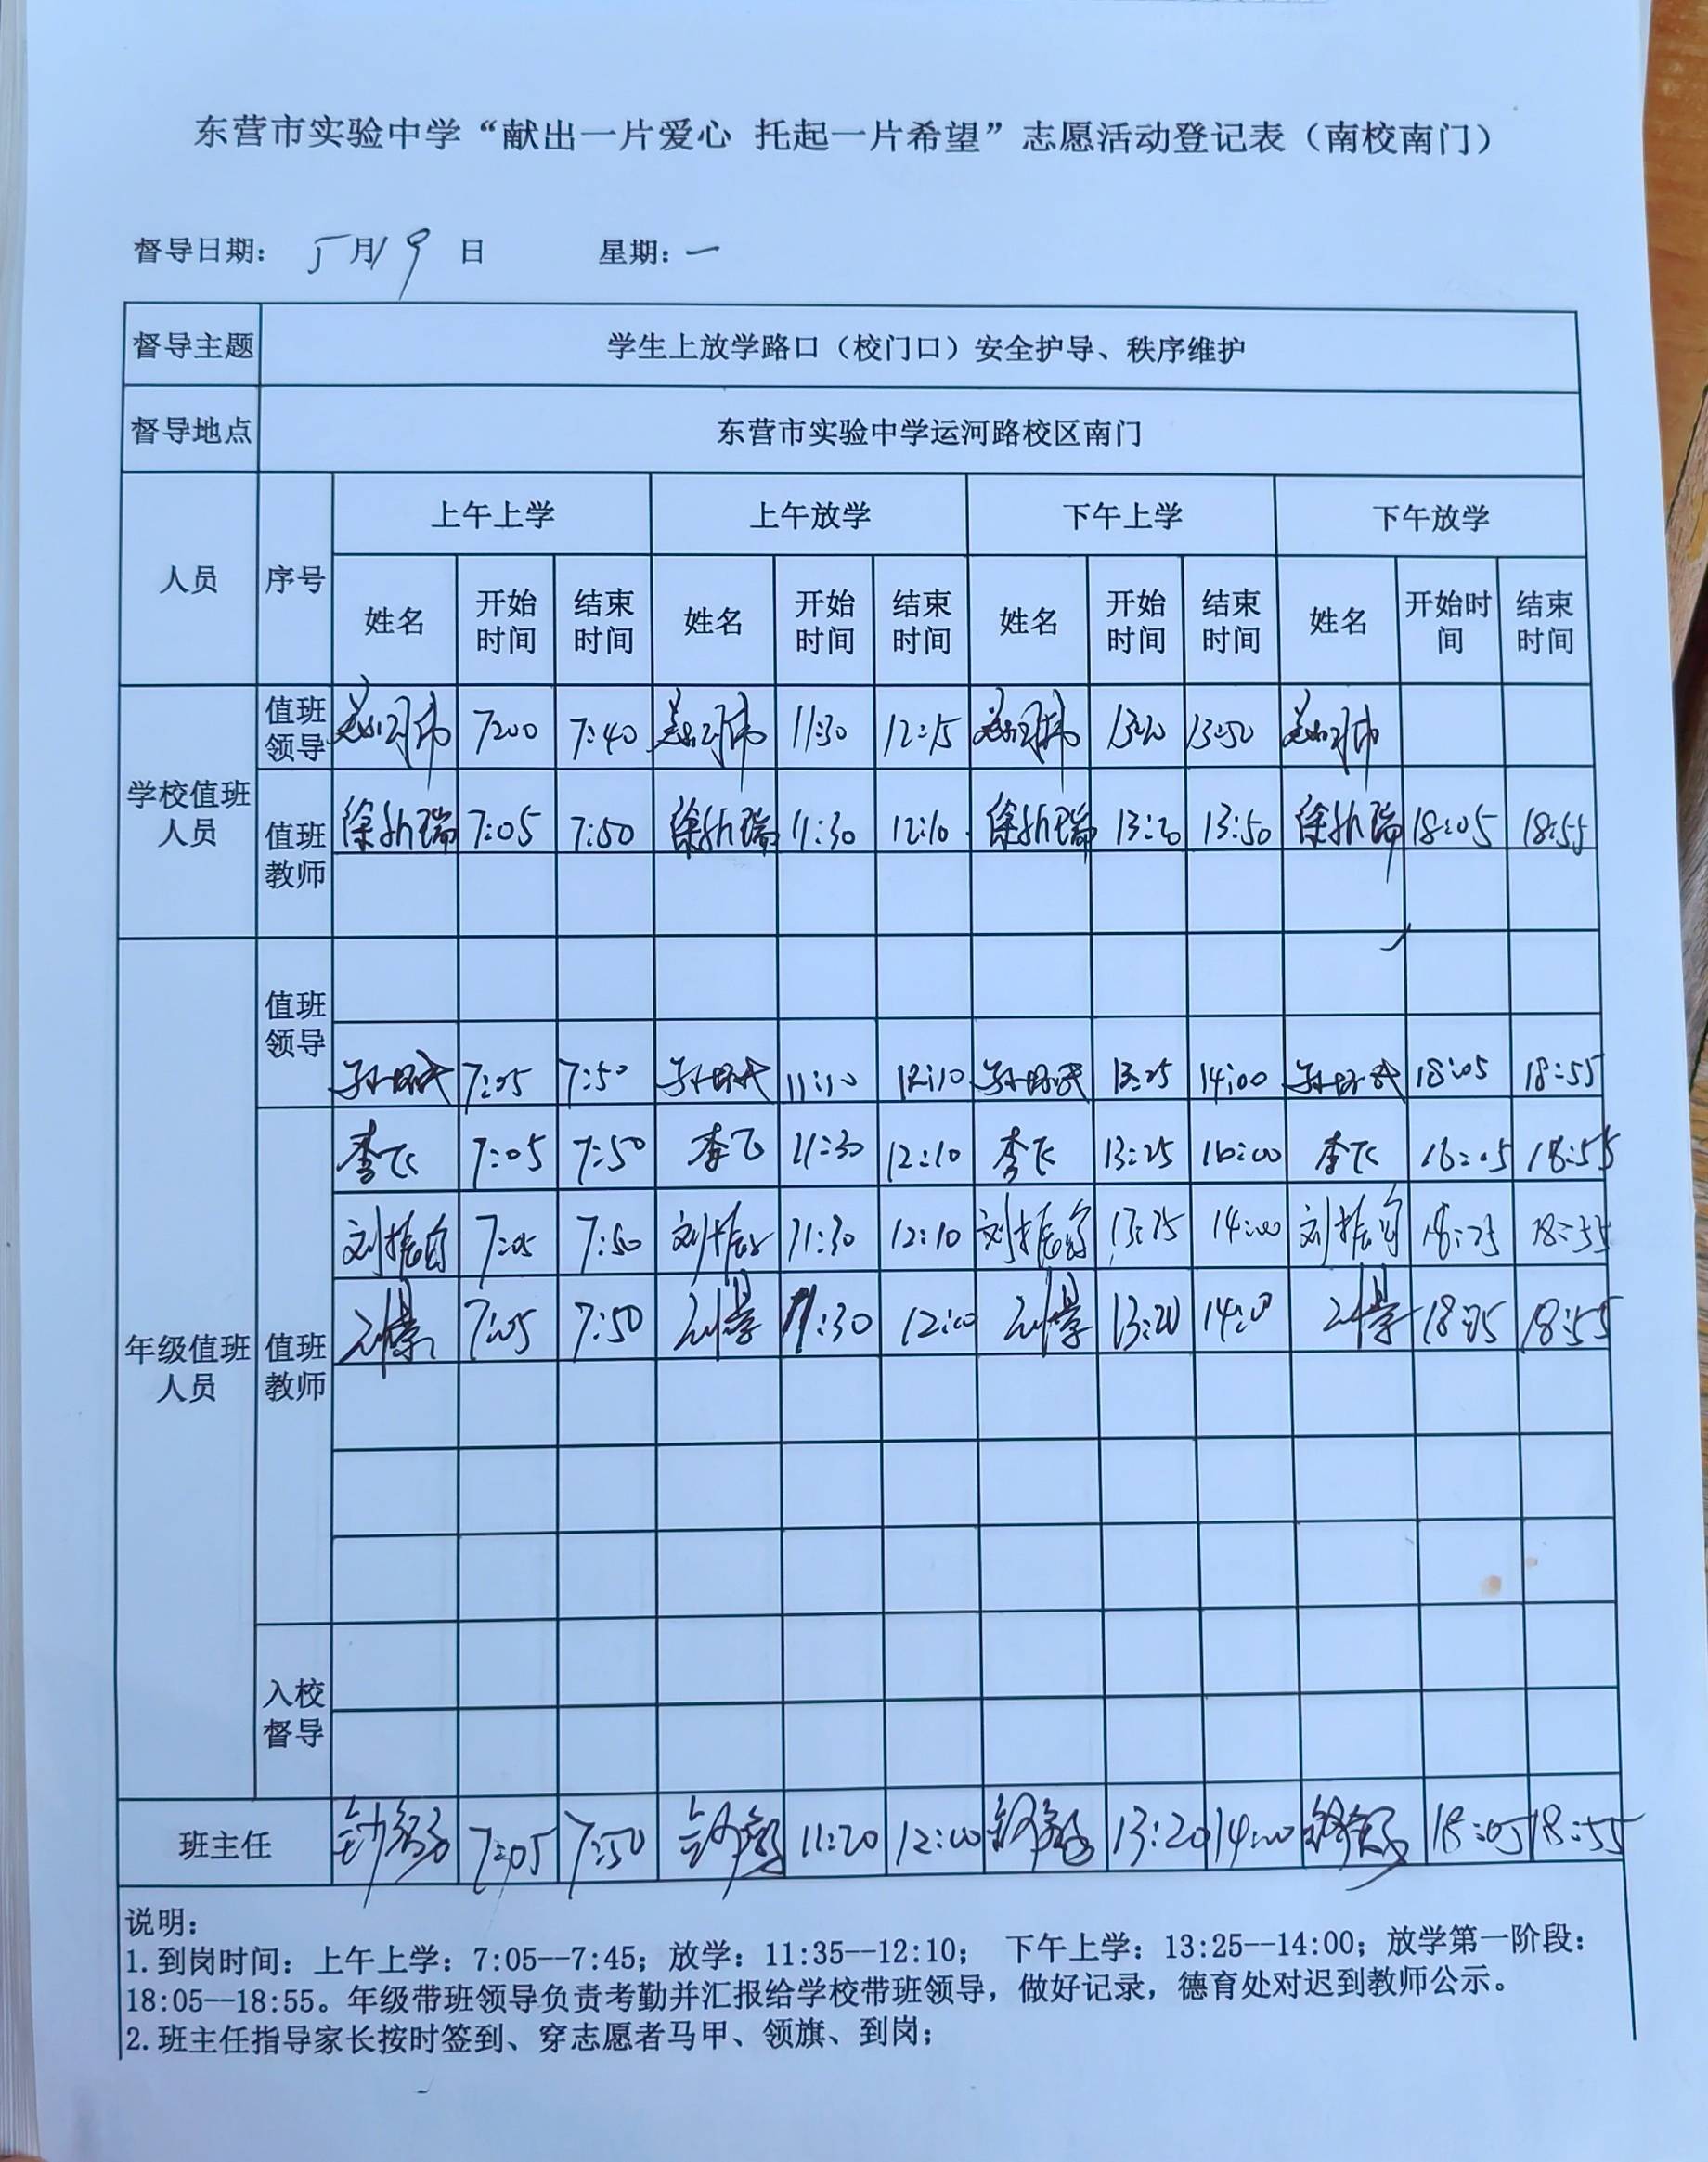 东营市实验中学“献出一片爱心 托起一片希望”志愿活动登记表（南校南门）
督导日期： 5月19日 星期：一
督导主题 学生上放学路口（校门口）安全护导、秩序维护
督导地点 东营市实验中学运河路校区南门
人员 序号 上午上学 上午放学 下午上学 下午放学
姓名 开始时间 结束时间 姓名 开始时间 结束时间 姓名 开始时间 结束时间 姓名 开始时间 结束时间
学校值班人员 值班领导 7:00 7:40 11:30 12:15 13:20 13:50
值班教师 7:05 7:50 11:30 12:10 13:20 13:50 18:05 18:55
年级值班人员 值班领导 7:05 7:50 11:30 12:10 13:25 14:00 18:05 18:55
值班教师 李飞 7:05 7:50 李飞 11:30 12:10 李飞 13:25 李飞 18:55
刘振 7:05 7:50 刘振 11:30 12:10 刘振 13:25 14:00 刘振 18:55
7:05 7:50 11:30 12:00 13:20 14:00 18:55
入校督导
班主任 7:05 7:50 11:20 12:00 13:20 14:00 18:05 18:55
说明：
1.到岗时间：上午上学：7:05--7:45；放学：11:35--12:10； 下午上学：13:25--14:00；放学第一阶段：
18:05--18:55。年级带班领导负责考勤并汇报给学校带班领导，做好记录，德育处对迟到教师公示。
2.班主任指导家长按时签到、穿志愿者马甲、领旗、到岗；